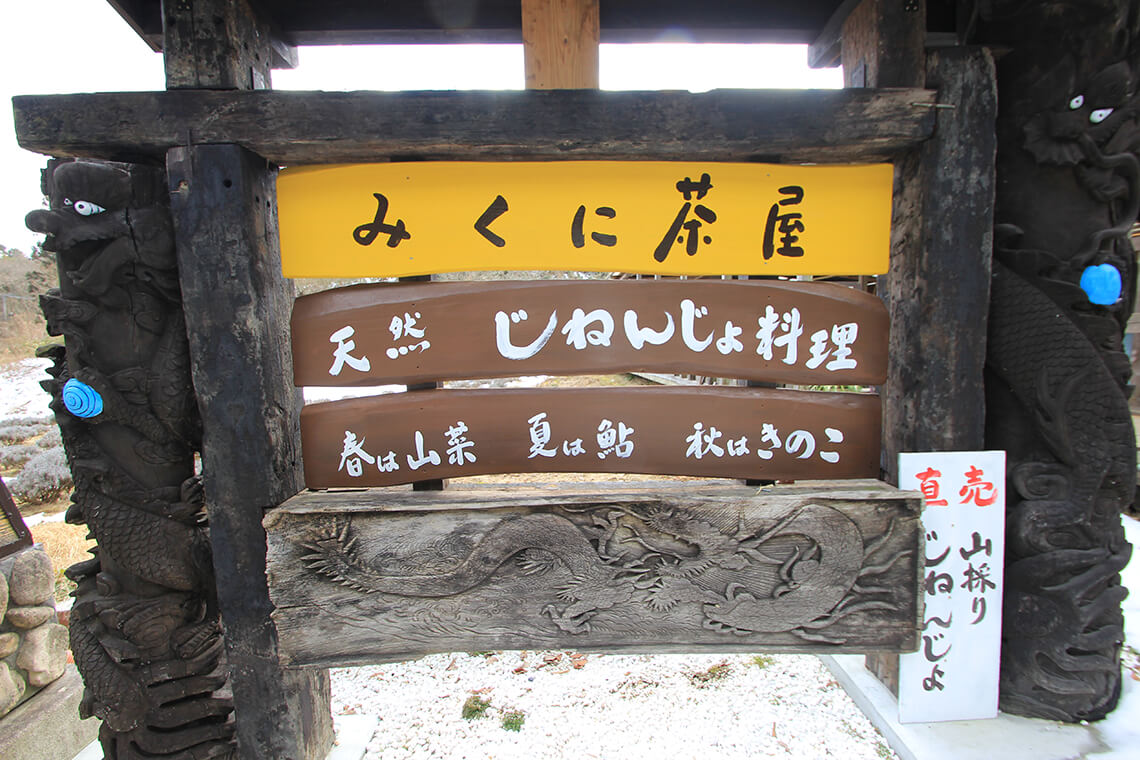 みくに茶屋
天然 じねんじょ料理
春は山菜 夏は鮎 秋はきのこ
直売
山採り
じねんじょ